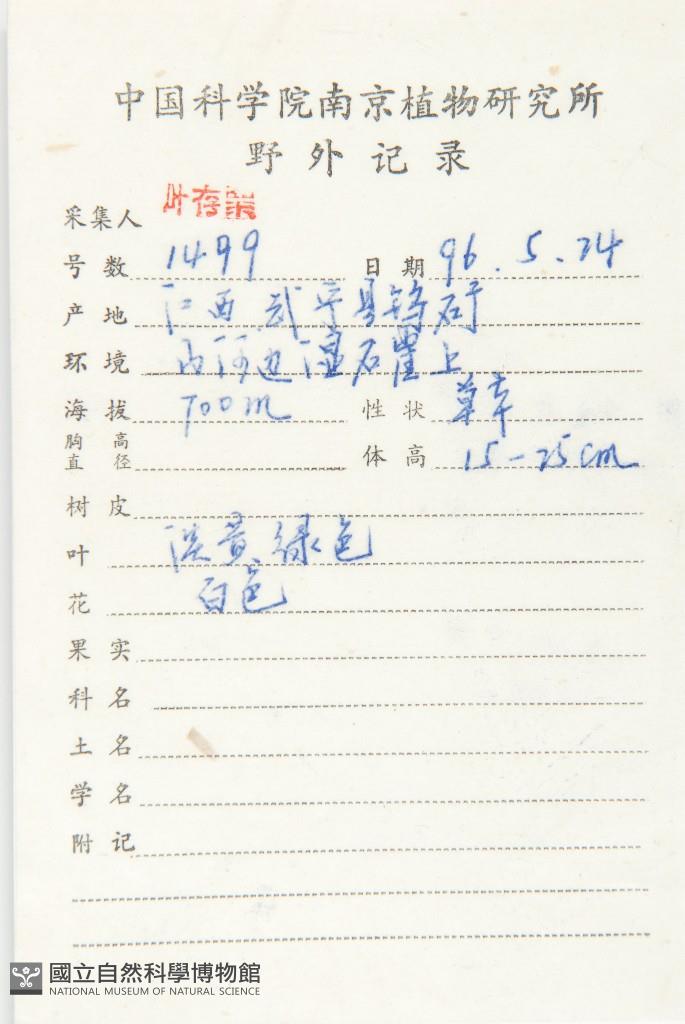 中国科学院南京植物研究所
野外记录
采集人 叶存粟
号数 1499 日期 96.5.24
产地 江西 武平县钨石于
环境 山河边湿石崖上
海拔 700m 性状 草本
胸高直径 体高 15-25cm
树皮
叶 淡黄绿色
花 白色
果实
科名
土名
学名
附记
國立自然科學博物館
NATIONAL MUSEUM OF NATURAL SCIENCE